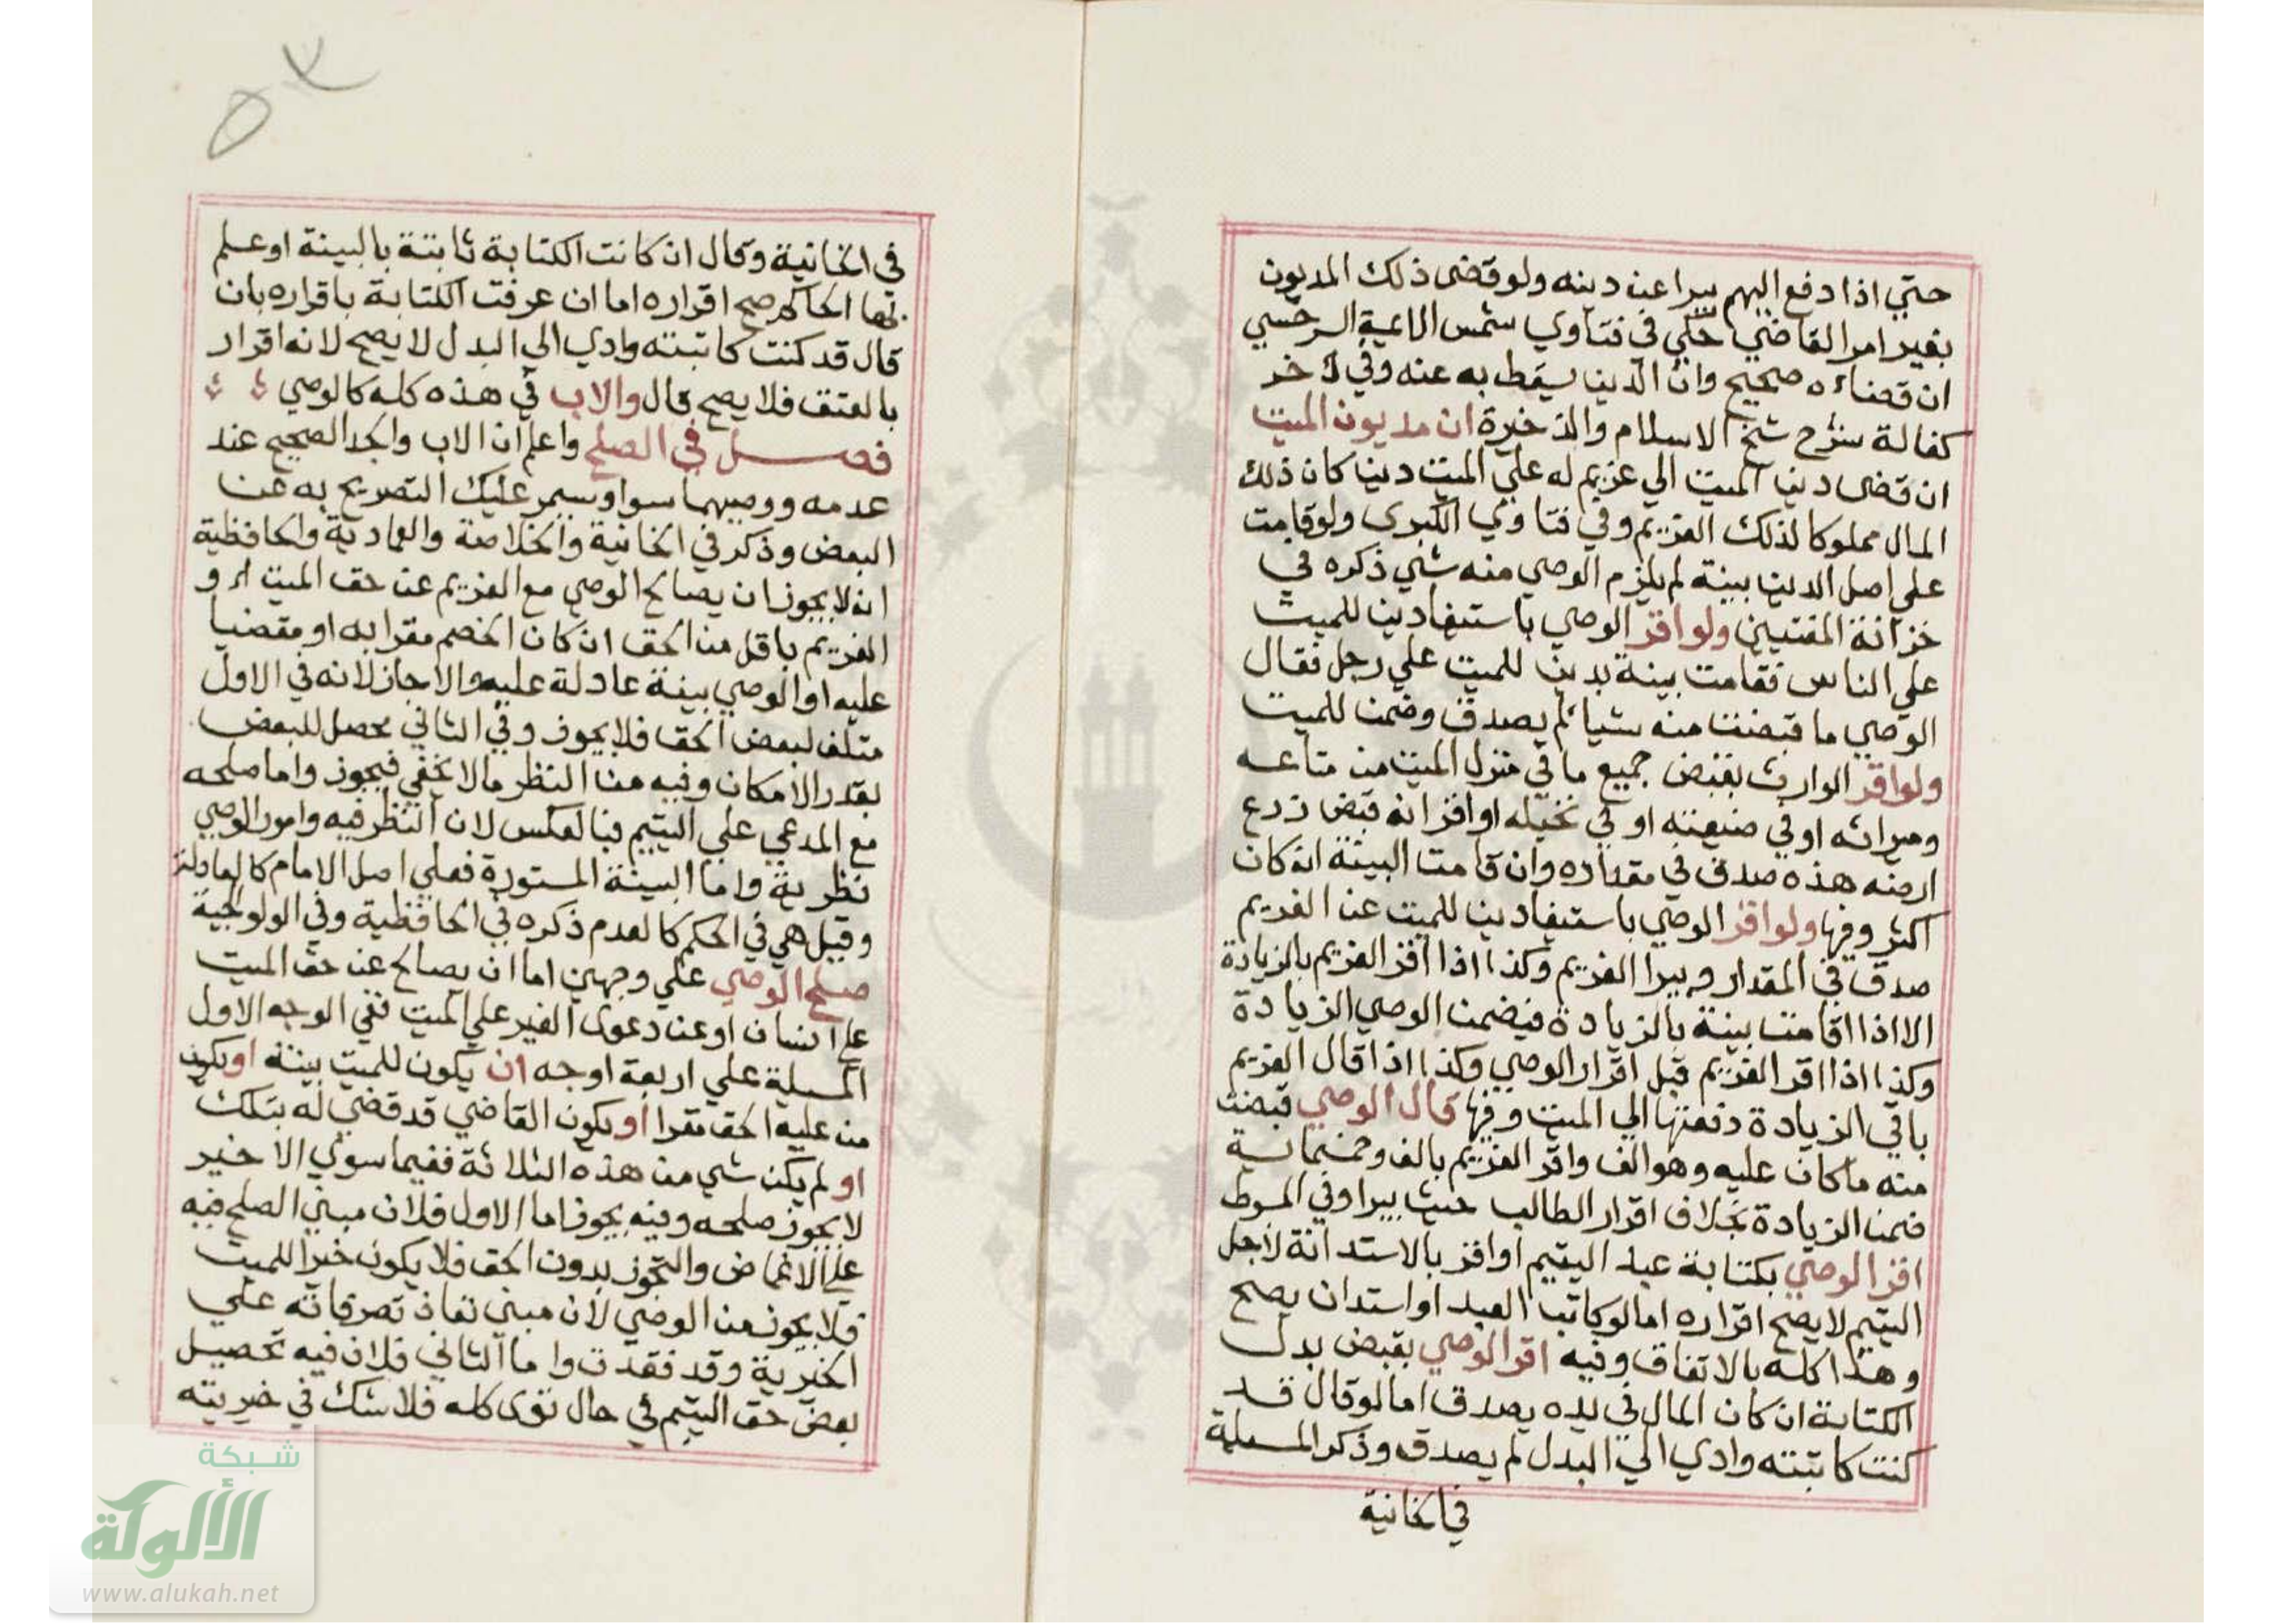 حتي اذا دفع اليهم يبرا عن دينه ولو قضى ذلك المديون
بغير امر القاضي حكي في فتاوي شمس الايمة السرخسي
ان قضاءه صحيح وان الدين يسقط به عنه وفي اخر
كفالة شرح شيخ الاسلام والذخيرة ان مديون الميت
ان قضى دين الميت الي غريم له علي الميت دين كان ذلك
المال مملوكا لذلك الغريم وفي فتاوي الكبرى ولو قامت
علي اصل الدين بينة لم يلزم الوصي منه شي ذكره في
خزانة المفتيين ولو اقر الوصي باستيفا دين للميت
علي الناس فقامت بينة بدين للميت علي رجل فقال
الوصي ما قبضت منه شيا لم يصدق وضمن للميت
ولو اقر الوارث بقبض جميع ما في منزل الميت من متاعه
وميراثه او في ضيعته او في نخيله او اقر انه قبض زرع
ارضه هذه صدق في مقداره وان قامت البينة انه كان
اكثر وفيها ولو اقر الوصي باستيفا دين للميت عن الغريم
صدق في المقدار ويبرا الغريم وكذا اذا اقر الغريم بالزيادة
الا اذا اقامت بينة بالزيادة فيضمن الوصي الزيادة
وكذا اذا اقر الغريم قبل اقرار الوصي وكذا اذا قال الغريم
باقي الزيادة دفعتها الي الميت وفيها قال الوصي قبضت
منه ما كان عليه وهو الف واقر الغريم بالف وخمسماية
ضمن الزيادة بخلاف اقرار الطالب حيث يبرا وفي المبسوط
اقر الوصي بكتابة عبد اليتيم او اقر بالاستدانة لاجل
اليتيم لا يصح اقراره اما لو كاتب العبد او استدان يصح
وهذا كله بالاتفاق وفيه اقر الوصي بقبض بدل
الكتابة ان كان المال في يده يصدق اما لو قال قد
كنت كاتبته وادي الي البدل لم يصدق وذكر المسيلة
في الخانية
في الخانية وقال ان كانت الكتابة ثابتة بالبينة او علم
بها الحاكم صح اقراره اما ان عرفت الكتابة باقراره بان
قال قد كنت كاتبته وادي الي البدل لا يصح لانه اقرار
بالعتق فلا يصح قال والاب في هذه كله كالوصي
فصل في الصلح واعلم ان الاب والجد الصحيح عند
عدمه ووصيهما سوا وسيمر عليك التصريح به عن
البعض وذكر في الخانية والخلاصة والعمادية والحافظية
انه لا يجوز ان يصالح الوصي مع الغريم عن حق الميت او
الغريم باقل من الحق ان كان الخصم مقرا به او مقضيا
عليه او الوصي بينة عادلة عليه والا جاز لانه في الاول
متلف لبعض الحق فلا يجوز وفي الثاني محصل للبعض
بقدر الامكان وفيه من النظر ما لا يخفي فيجوز واما صلحه
مع المدعي علي اليتيم فبالعكس لان النظر فيه وامور الوصي
نظرية واما البينة المستورة فعلي اصل الامام كالعادلة
وقيل هي في الحكم كالعدم ذكره في الحافظية وفي الولوالجية
صلح الوصي علي وجهين اما ان يصالح عن حق الميت
علي انسان او عن دعوى الغير علي الميت ففي الوجه الاول
المسيلة علي اربعة اوجه ان يكون للميت بينة او يكون
من عليه الحق مقرا او يكون القاضي قد قضي له بتلك
او لم يكن شي من هذه الثلاثة ففيما سوي الاخير
لا يجوز صلحه وفيه يجوز اما الاول فلان مبني الصلح فيه
علي الاغماض والتجوز بدون الحق فلا يكون خيرا للميت
فلا يجوز من الوصي لان مبني نفاذ تصرفاته علي
الخيرية وقد فقدت واما الثاني فلان فيه تحصيل
بعض حق اليتيم في حال توى كله فلا شك في خيريته
شبكة
الألوكة
www.alukah.net